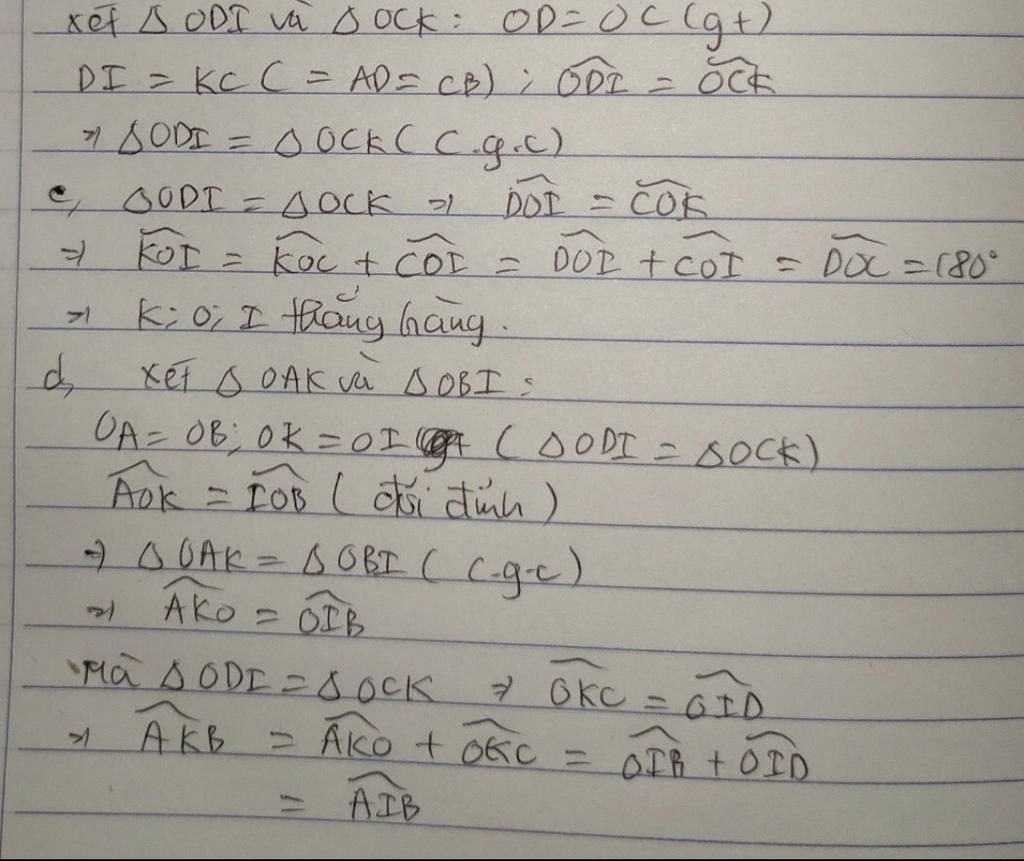 xét Δ ODI và Δ OCK: OD = OC (gt)
DI = KC ( = AD = CB) ; \widehat{ODI} = \widehat{OCK}
⇒ Δ ODI = Δ OCK ( c.g.c)
c, Δ ODI = Δ OCK ⇒ \widehat{DOI} = \widehat{COK}
⇒ \widehat{KOI} = \widehat{KOC} + \widehat{COI} = \widehat{DOI} + \widehat{COI} = \widehat{DOC} = 180°
⇒ K; O; I thẳng hàng.
d, xét Δ OAK và Δ OBI :
OA = OB; OK = OI ( Δ ODI = Δ OCK)
\widehat{AOK} = \widehat{IOB} ( đối đỉnh )
⇒ Δ OAK = Δ OBI ( c-g-c)
⇒ \widehat{AKO} = \widehat{OIB}
Mà Δ ODI = Δ OCK ⇒ \widehat{OKC} = \widehat{OID}
⇒ \widehat{AKB} = \widehat{AKO} + \widehat{OKC} = \widehat{OIB} + \widehat{OID}
= \widehat{AIB}